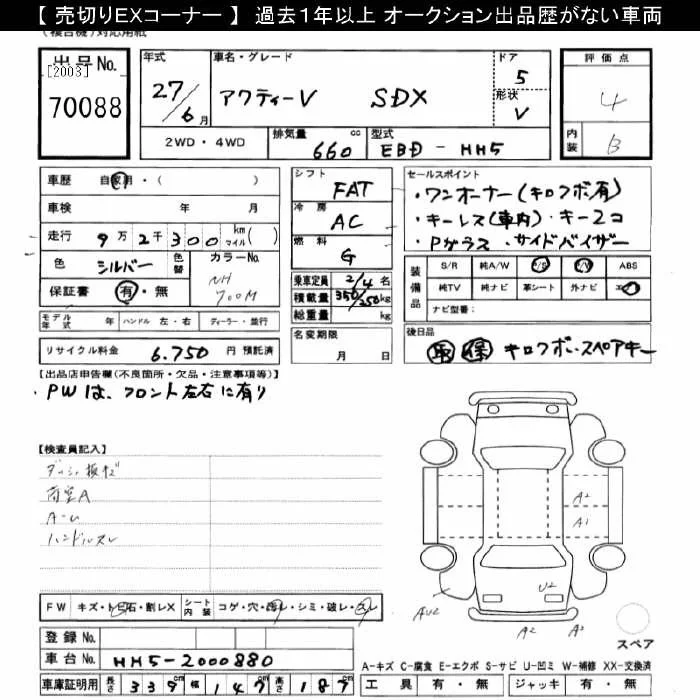 【 売切りEXコーナー 】 過去1年以上 オークション出品歴がない車両
(複合機)対応用紙
出品No. [2003] 70088
年式 27/6月
車名・グレード アクティーV SDX
ドア 5
形状 V
評価点 4
内装 B
2WD・4WD
排気量 660 cc
型式 EBD - HH5
車歴 自家用・( )
車検 年 月
走行 9万2千300 km マイル( )
色 シルバー 色替
カラーNo. NH700M
保証書 有・無
モデル年式 年 ハンドル 左・右 ディーラー・並行
リサイクル料金 6,750 円 預託済
シフト FAT
冷房 AC
燃料 G
乗車定員 2/4 名
積載量 350/250 kg
総重量 kg
名変期限 月 日
セールスポイント
・ワンオーナー(キロクボ有)
・キーレス(車内)・キー2コ
・Pガラス ・サイドバイザー
装備品
S/R 純A/W P/S P/W ABS
純TV 純ナビ 革シート 外ナビ エアB
ナビ型番:
後日品
取 保 キロクボ・スペアキー
【出品店申告欄(不良箇所・欠品・注意事項等)】
・PWは、フロント左右に有り
【検査員記入】
荷室A
ハンドルスレ
FW キズ・トビ石・割レX シート内装 コゲ・穴・汚レ・シミ・破レ・スレ
登録No.
車台No. HH5-2000880
車庫証明用 長さ 339cm 幅 147cm 高さ 187cm
A2
A1
U2
AU2
A2
A3
スペア
A-キズ C-腐食 E-エクボ S-サビ U-凹ミ W-補修 XX-交換済
工具 有・無 ジャッキ 有・無